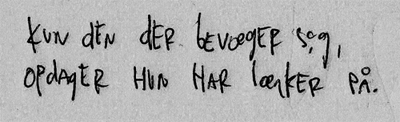 KUN DEN DER bEVæGER Sig,
OPDAGER HUN HAR lænkER PÅ.